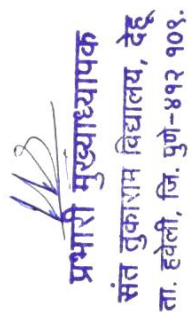 प्रभारी मुख्याध्यापक
संत तुकाराम विद्यालय, देहू
ता. हवेली, जि. पुणे-४१२ १०९.